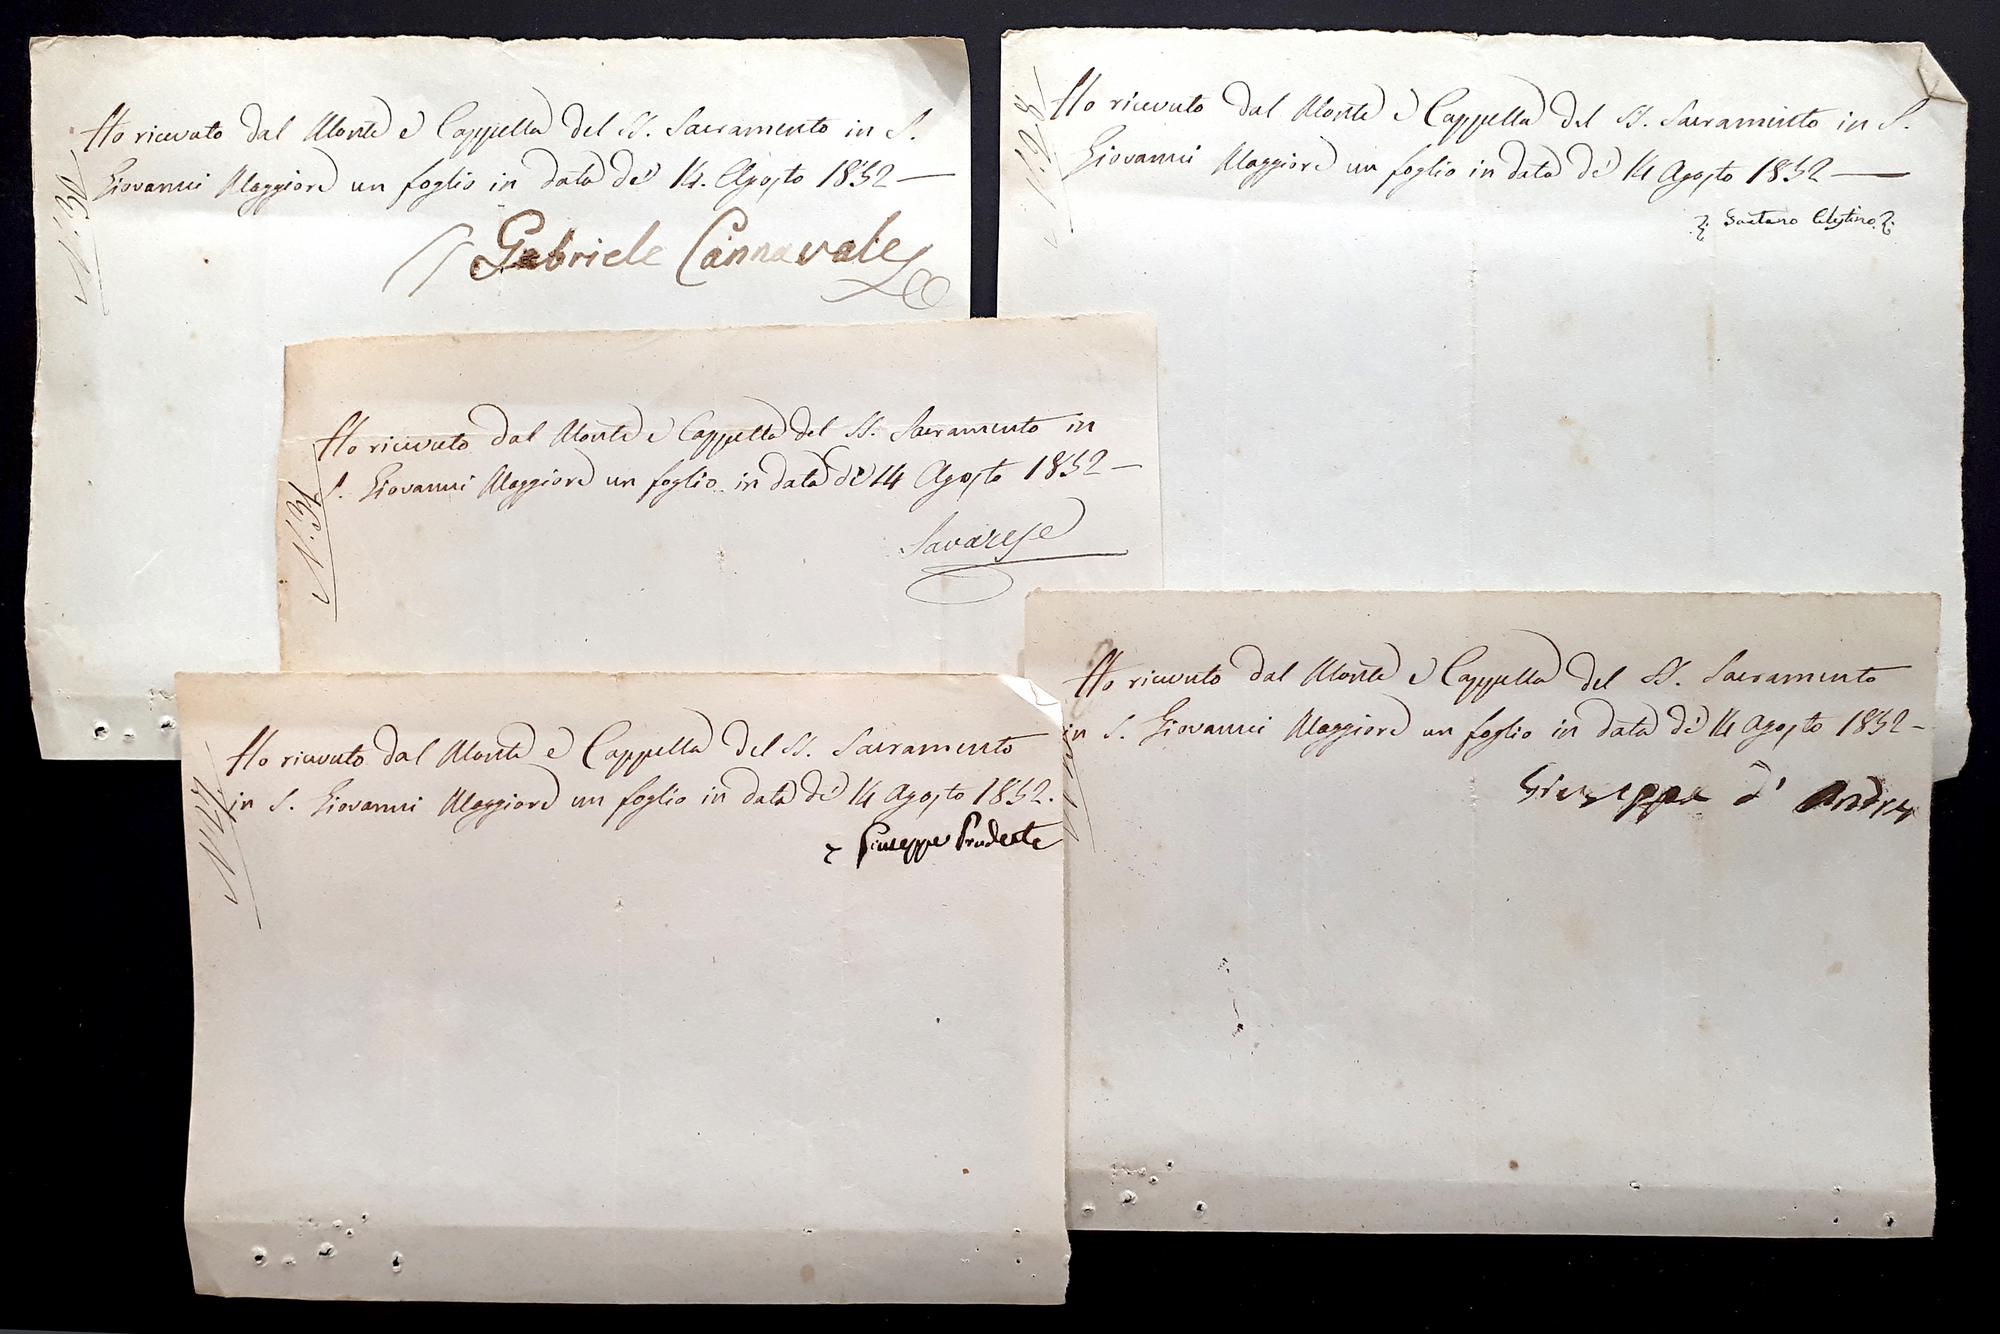 N. 30
Ho ricevuto dal Monte e Cappella del SS. Sacramento in S.
Giovanni Maggiore un foglio in data de' 14. Agosto 1852 —
Gabriele Cannavale
N. 28
Ho ricevuto dal Monte e Cappella del SS. Sacramento in S.
Giovanni Maggiore un foglio in data de' 14 Agosto 1852 —
Gaetano Celestino
N. 31
Ho ricevuto dal Monte e Cappella del SS. Sacramento in
S. Giovanni Maggiore un foglio in data de' 14 Agosto 1852 —
Savarese
N. 27
Ho ricevuto dal Monte e Cappella del SS. Sacramento
in S. Giovanni Maggiore un foglio in data de' 14 Agosto 1852.
Giuseppe Prudente
Ho ricevuto dal Monte e Cappella del SS. Sacramento
in S. Giovanni Maggiore un foglio in data de' 14 Agosto 1852 —
Giuseppe d' Andrea